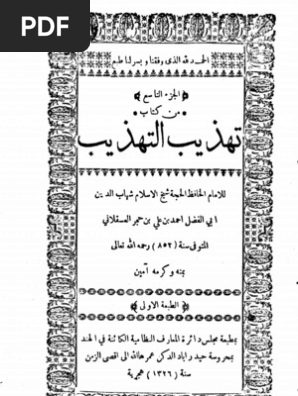 PDF
الحمد لله الذى وفقنا ويسر لنا طبع
الجزء التاسع
من كتاب
تهذيب التهذيب
للامام الحافظ الحجة شيخ الاسلام شهاب الدين
ابي الفضل احمد بن علي بن حجر العسقلاني
المتوفى سنة (٨٥٢) رحمه الله تعالى
بمنه وكرمه آمين
الطبعة الاولى
بمطبعة مجلس دائرة المعارف النظامية الكائنة في الهند
بمحروسة حيدراباد الدكن عمرها الله الى اقصى الزمن
سنة (١٣٢٦) هجرية